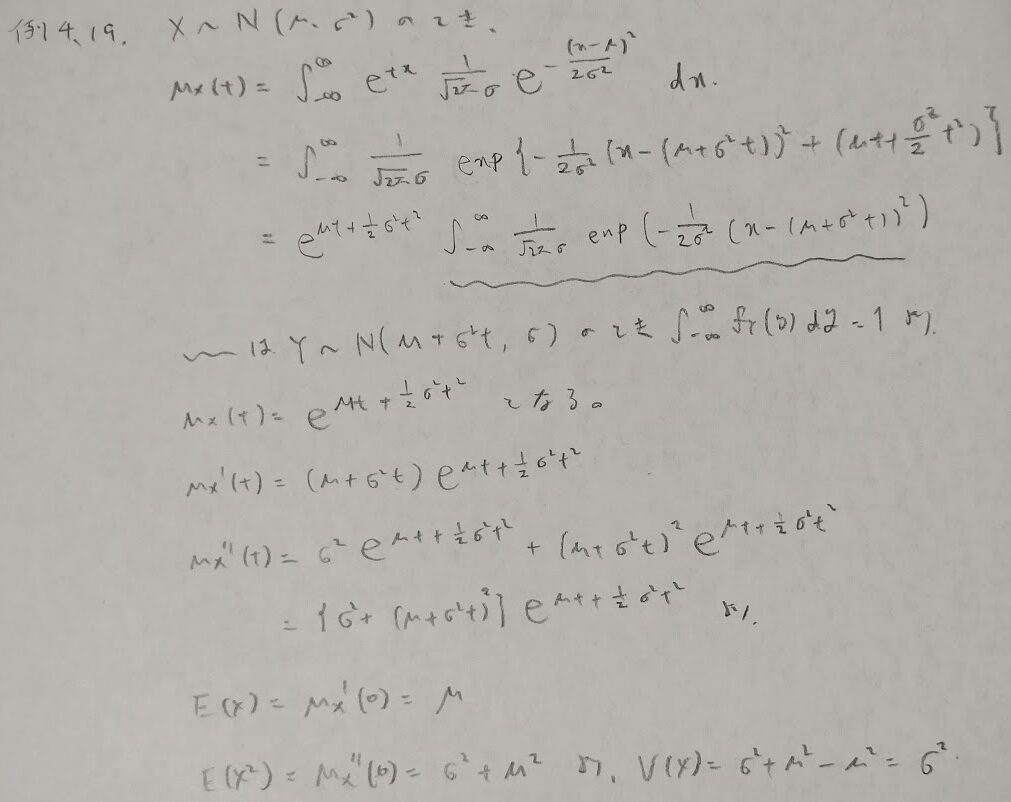 例4.19. X ~ N(μ, σ²) のとき、
Mx(t) = ∫_{-∞}^{∞} e^{tx} 1/(√2π σ) e^{-(x-μ)²/2σ²} dx.
= ∫_{-∞}^{∞} 1/(√2π σ) exp{-1/2σ² (x-(μ+σ²t))² + (μt+σ²/2 t²)}
= e^{μt+1/2σ²t²} ∫_{-∞}^{∞} 1/(√2π σ) exp(-1/2σ² (x-(μ+σ²t))²)
〜〜 は Y ~ N(μ+σ²t, σ) のとき ∫_{-∞}^{∞} f_Y(y) dy = 1 より,
Mx(t) = e^{μt+1/2σ²t²} となる。
Mx'(t) = (μ+σ²t) e^{μt+1/2σ²t²}
Mx''(t) = σ² e^{μt+1/2σ²t²} + (μ+σ²t)² e^{μt+1/2σ²t²}
= {σ²+(μ+σ²t)²} e^{μt+1/2σ²t²} より,
E(X) = Mx'(0) = μ
E(X²) = Mx''(0) = σ²+μ² より, V(X) = σ²+μ²-μ² = σ².